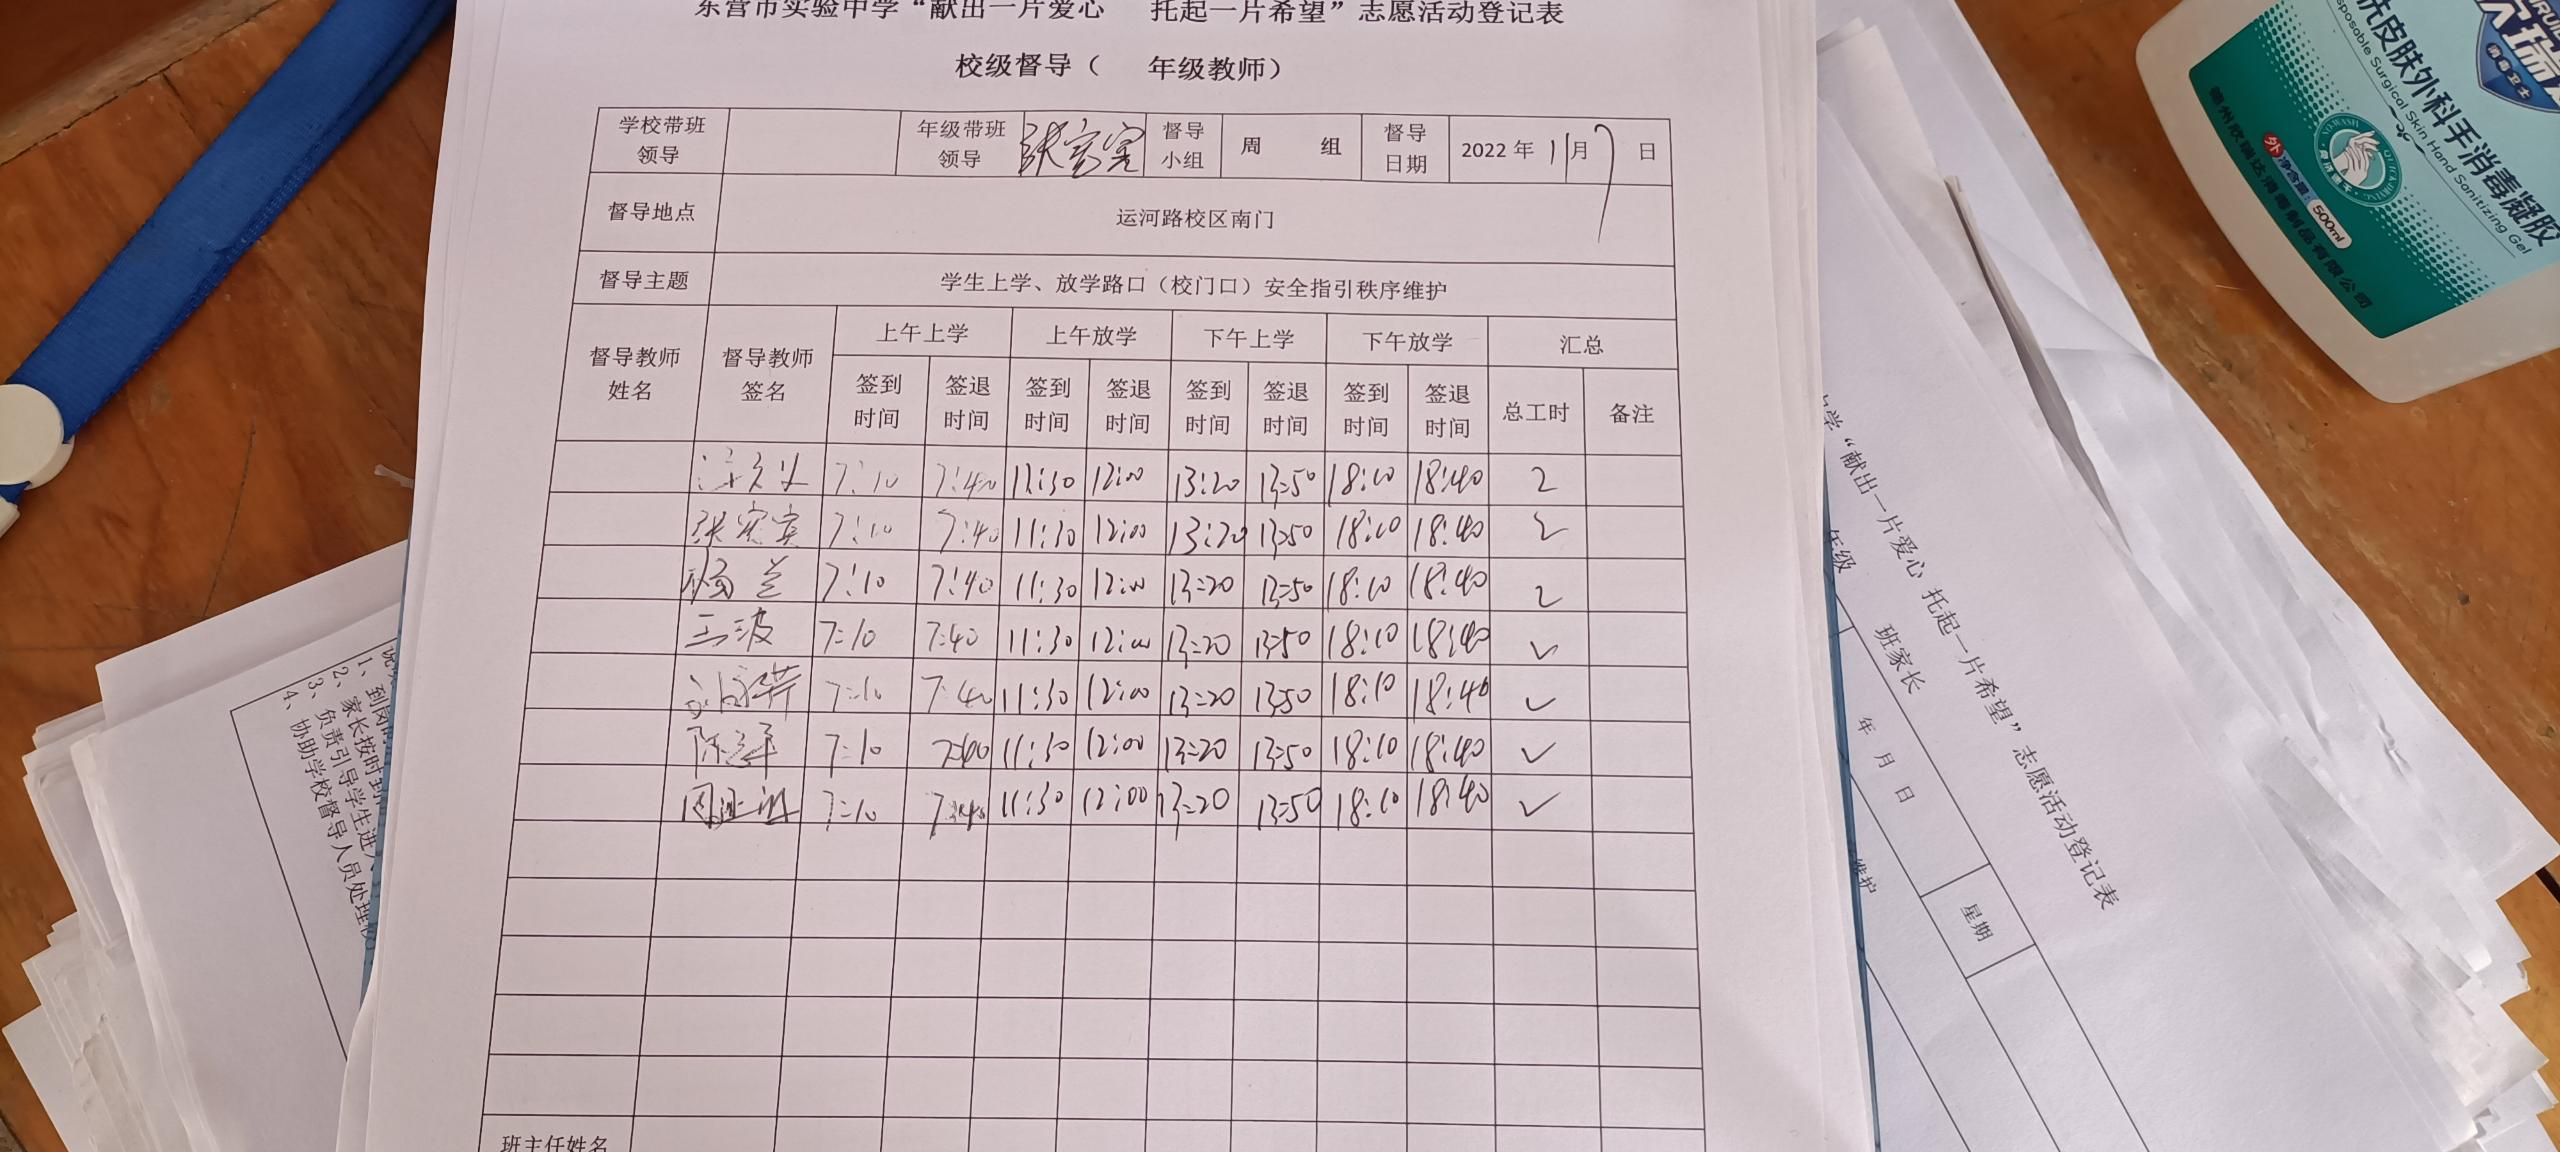 东营市实验中学“献出一片爱心 托起一片希望”志愿活动登记表
校级督导（ 年级教师）
学校带班领导 年级带班领导 督导小组 周 组 督导日期 2022年 11月 7日
督导地点 运河路校区南门
督导主题 学生上学、放学路口（校门口）安全指引秩序维护
督导教师姓名 督导教师签名 上午上学 上午放学 下午上学 下午放学 汇总
签到时间 签退时间 签到时间 签退时间 签到时间 签退时间 签到时间 签退时间 总工时 备注
7:10 7:40 11:30 12:00 13:20 13:50 18:10 18:40 2
7:10 7:40 11:30 12:00 13:20 13:50 18:10 18:40 2
杨兰 7:10 7:40 11:30 12:00 13:20 13:50 18:10 18:40 2
王波 7:10 7:40 11:30 12:00 13:20 13:50 18:10 18:40 ✓
7:10 7:40 11:30 12:00 13:20 13:50 18:10 18:40 ✓
7:10 7:40 11:30 12:00 13:20 13:50 18:10 18:40 ✓
7:10 7:40 11:30 12:00 13:20 13:50 18:10 18:40 ✓
班主任姓名
1、到岗
2、家长按时到
3、负责引导学生进入
4、协助学校督导人员处理
中学“献出一片爱心 托起一片希望”志愿活动登记表
年级 班家长
年 月 日
星期
维护
洗皮肤外科手消毒凝胶
sposable Surgical Skin Hand Sanitizing Gel
消毒卫士
NO-WASH
外 净含量: 500ml
德州欣瑞达消毒制品有限公司